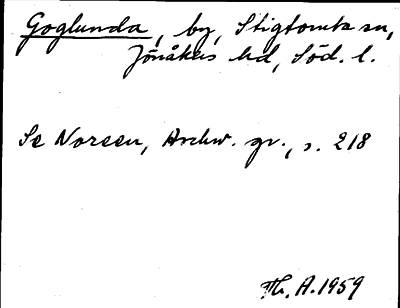 Goglunda, by, Stigtomta sn,
Jönåkers hd, Söd. l.
Se Noreen, Archiv. gr., s. 218
Th. A. 1959